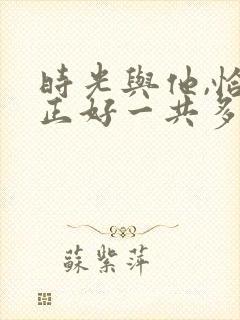 時光與他,恰
正好一共多
蘇紫萍